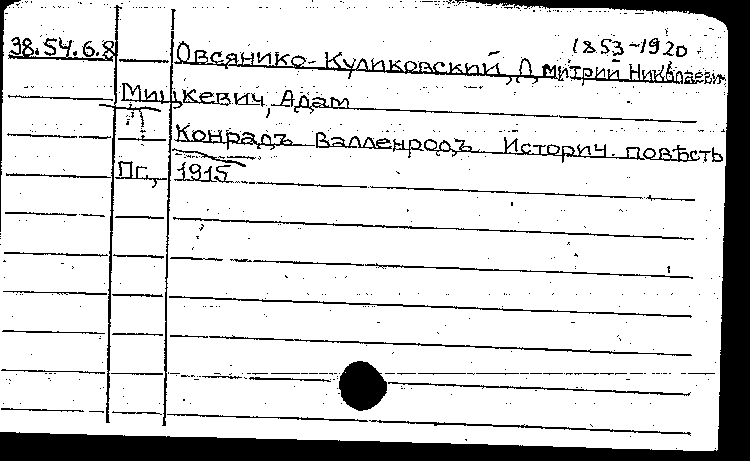 1853-1920
38.54.6.8 Овсянико-Куликовский, Дмитрий Николаевич
Мицкевич, Адам
Конрадъ Валленродъ. Историч. повѣсть
Пг., 1915